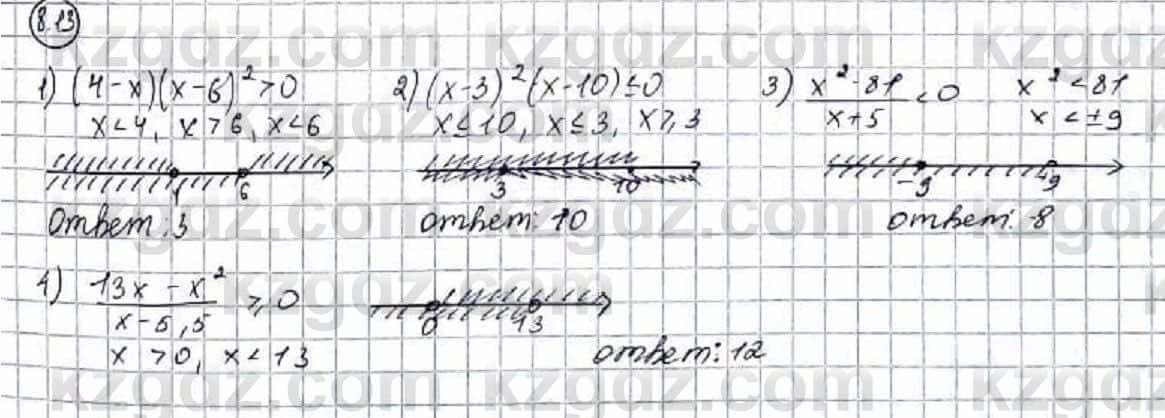 8.13
kzgdz.com kzgdz.com kzgdz.com
1) (4-x)(x-6)²>0 2) (x-3)²(x-10)≤0 3) x²-81/x+5 <0 x²<81
x<4, x>6, x<6 x≤10, x≤3, x≥3 x<±9
4 6 3 10 -9 9
Ответ: 3 Ответ: 10 Ответ: -8
4) 13x-x²/x-5,5 ≥0 0 13
x>0, x<13 Ответ: 12